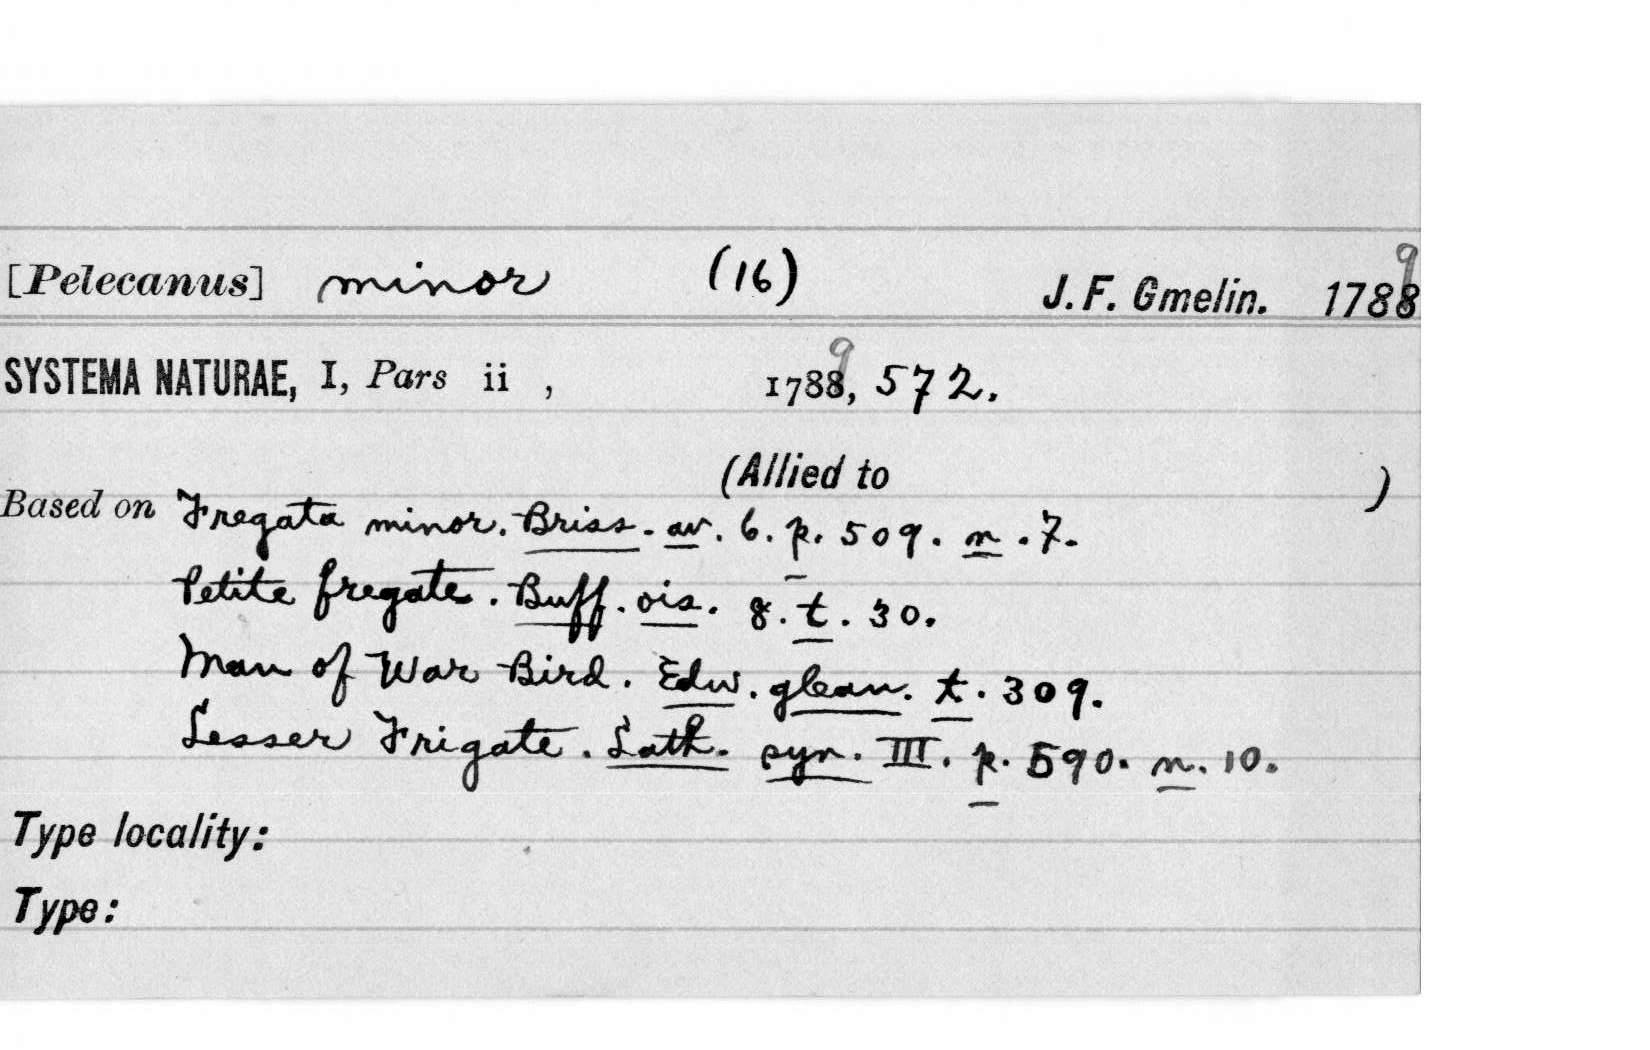 [Pelecanus] minor (16) J. F. Gmelin. 1788 9
SYSTEMA NATURAE, I, Pars ii , 1788, 9 572.
(Allied to )
Based on Fregata minor. Briss. av. 6. p. 509. n. 7.
Petite fregate. Buff. ois. 8. t. 30.
Man of War Bird. Edw. glean. t. 309.
Lesser Frigate. Lath. syn. III. p. 590. n. 10.
Type locality:
Type: